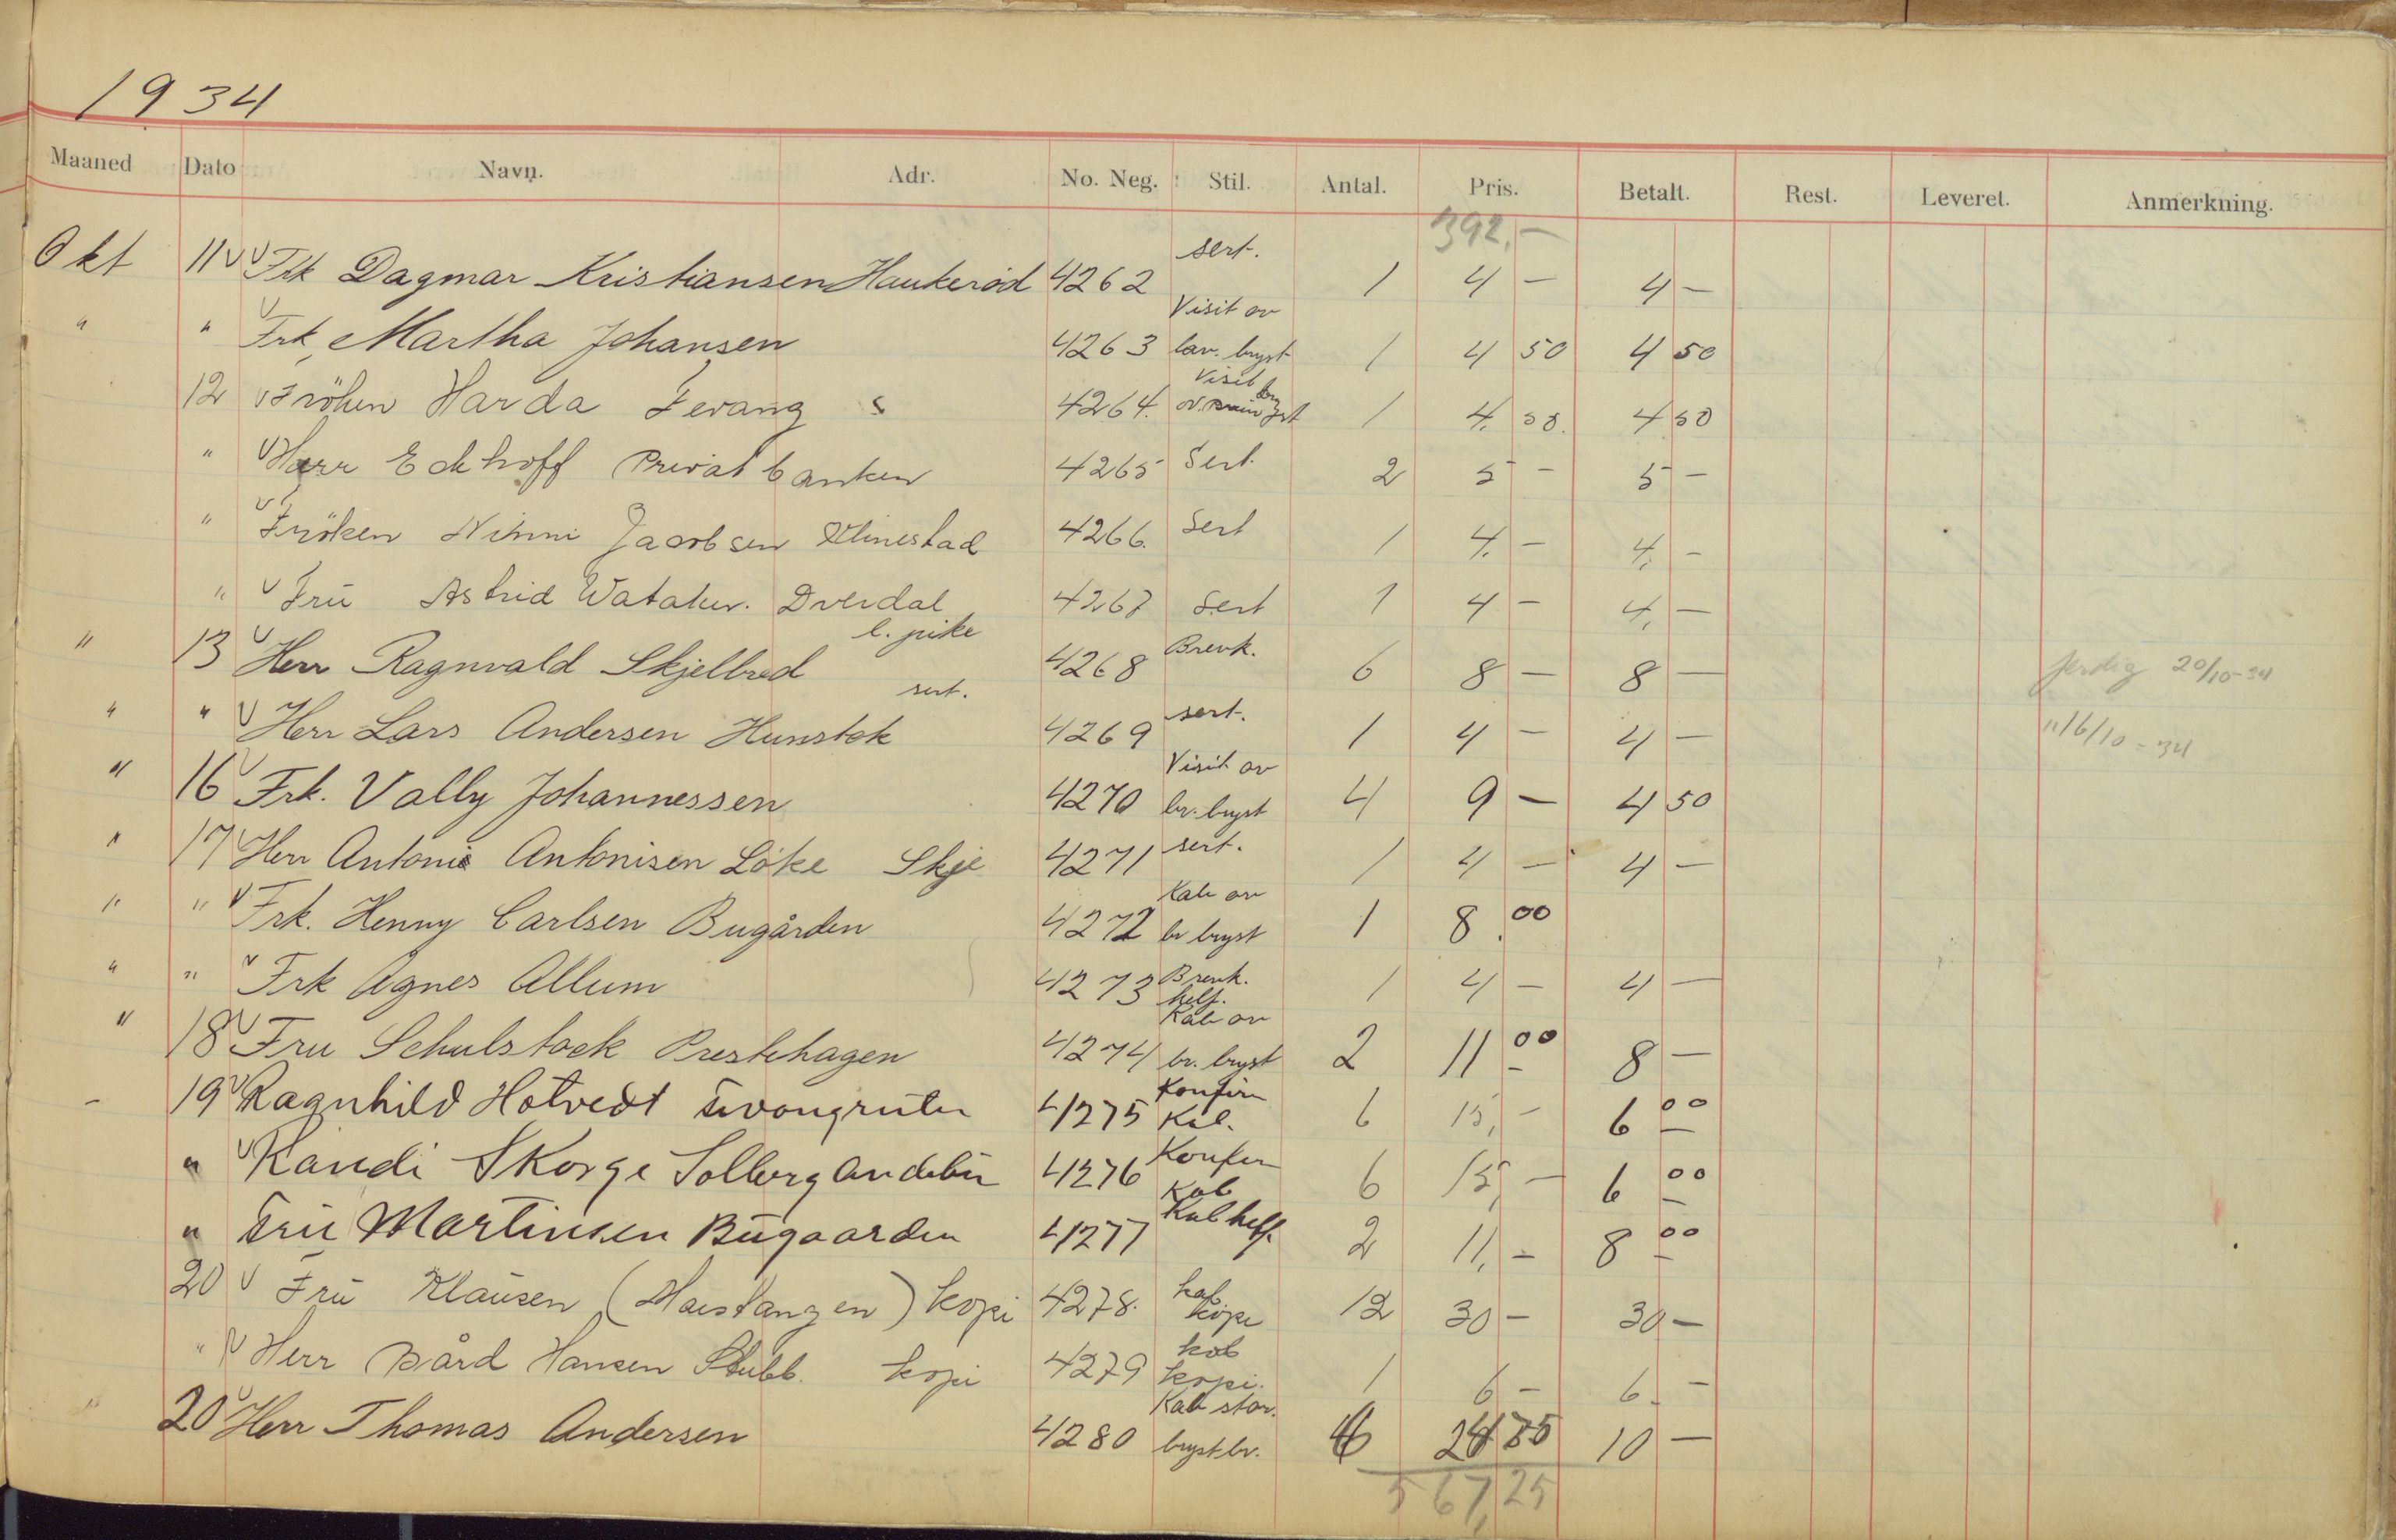 1934
Maaned Dato Navn. Adr. No. Neg. Stil. Antal. Pris. Betalt. Rest. Leveret. Anmerkning.
392.—
Okt 11 Frk Dagmar Kristiansen Haukerød 4262 sert. 1 4 — 4 —
" " Frk, Martha Johansen 4263 Visit ov lav. bryst 1 4 50 4 50
12 Harda Jerang 4264. Visit 1 4. 50. 4 50
" Herr Eckhoff Privatbanken 4265 Sert. 2 5 — 5 —
" Fröken Ninni Jacobsen Klinestad 4266. Sert 1 4. — 4, —
" Frü Astrid Dverdal 4267 Sert 1 4 — 4, —
l. pike
" 13 Herr Ragnvald Skjelbred 4268 Brevk. 6 8 — 8 — ferdig 20/10-34
sert.
" " Herr Lars Andersen Hunstok 4269 sert. 1 4 — 4 — "16/10-34
" 16 Frk. Vally Johannessen 4270 Visit ov br. bryst 4 9 — 4 50
" 17 Herr Antoni Antonisen Løke Skje 4271 sert. 1 4 — 4 —
" " Frk. Henny Carlsen Bugården 4272 Kab ov br bryst 1 8.00
" " Frk Agnes Allum 4273 Brevk. helf. 1 4 — 4 —
" 18 Fru Schulstock Prestehagen 4274 Kab ov br. bryst 2 11 00 8 —
- 19 Ragnhild Hotvedt 4275 Konfir Kab. 6 15, — 6 00
" Randi Skorge Solberg Andebu 4276 Konfir Kab 6 15, — 6 00
" Frü Martinsen Bügaarden 4277 Kab helf. 2 11, — 8 00
20 Frü Klausen kopi 4278. kab kopi 12 30 — 30 —
" Herr Bård Hansen Stubb. kopi 4279 kab kopi. 1 6 — 6. —
20 Herr Thomas Andersen 4280 Kab stor. bryst br. 10 —
567,25